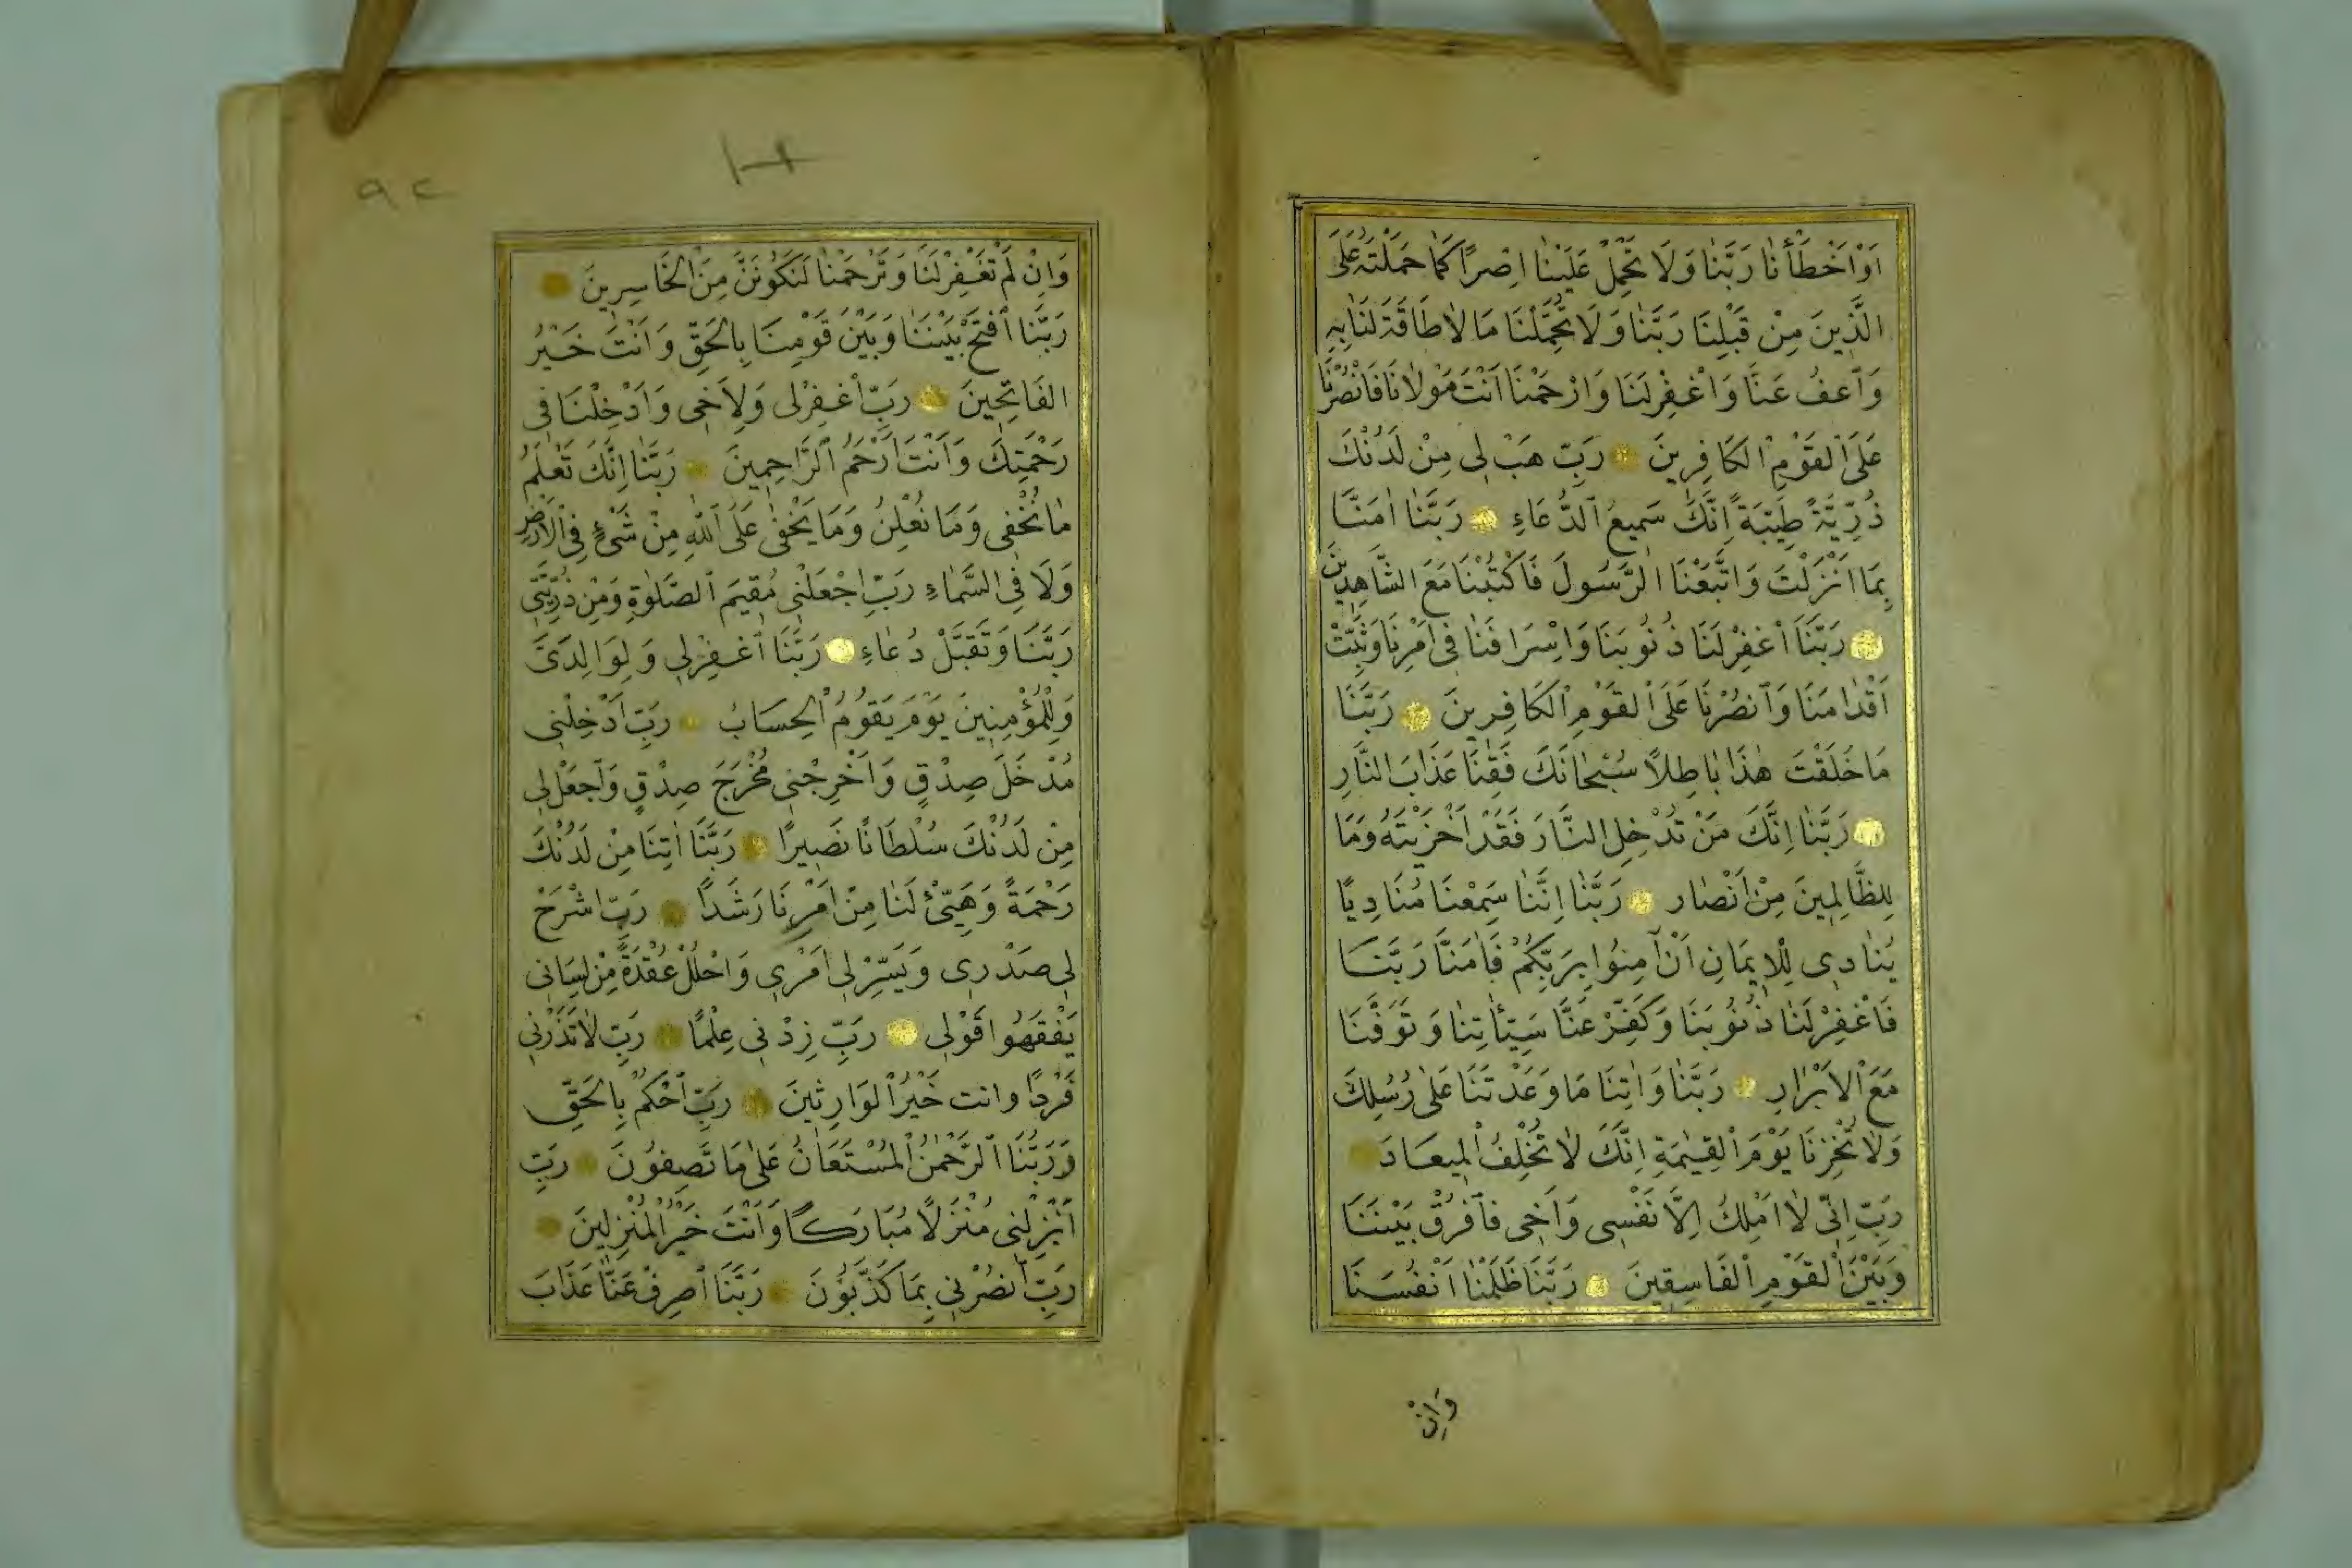 اَوْ اَخْطَأْنَا رَبَّنَا وَلَا تَحْمِلْ عَلَيْنَا اِصْرًا كَمَا حَمَلْتَهُ عَلَى
الَّذِينَ مِنْ قَبْلِنَا رَبَّنَا وَلَا تُحَمِّلْنَا مَا لَا طَاقَةَ لَنَا بِهِ
وَاعْفُ عَنَّا وَاغْفِرْ لَنَا وَارْحَمْنَا اَنْتَ مَوْلَانَا فَانْصُرْنَا
عَلَى الْقَوْمِ الْكَافِرِينَ رَبِّ هَبْ لِي مِنْ لَدُنْكَ
ذُرِّيَّةً طَيِّبَةً اِنَّكَ سَمِيعُ الدُّعَاءِ رَبَّنَا اٰمَنَّا
بِمَا اَنْزَلْتَ وَاتَّبَعْنَا الرَّسُولَ فَاكْتُبْنَا مَعَ الشَّاهِدِينَ
رَبَّنَا اغْفِرْ لَنَا ذُنُوبَنَا وَاِسْرَافَنَا فِي اَمْرِنَا وَثَبِّتْ
اَقْدَامَنَا وَانْصُرْنَا عَلَى الْقَوْمِ الْكَافِرِينَ رَبَّنَا
مَا خَلَقْتَ هٰذَا بَاطِلًا سُبْحَانَكَ فَقِنَا عَذَابَ النَّارِ
رَبَّنَا اِنَّكَ مَنْ تُدْخِلِ النَّارَ فَقَدْ اَخْزَيْتَهُ وَمَا
لِلظَّالِمِينَ مِنْ اَنْصَارٍ رَبَّنَا اِنَّنَا سَمِعْنَا مُنَادِيًا
يُنَادِي لِلْاِيمَانِ اَنْ آمِنُوا بِرَبِّكُمْ فَاٰمَنَّا رَبَّنَا
فَاغْفِرْ لَنَا ذُنُوبَنَا وَكَفِّرْ عَنَّا سَيِّئَاتِنَا وَتَوَفَّنَا
مَعَ الْاَبْرَارِ رَبَّنَا وَاٰتِنَا مَا وَعَدْتَنَا عَلٰى رُسُلِكَ
وَلَا تُخْزِنَا يَوْمَ الْقِيٰمَةِ اِنَّكَ لَا تُخْلِفُ الْمِيعَادَ
رَبِّ اِنِّي لَا اَمْلِكُ اِلَّا نَفْسِي وَاَخِي فَافْرُقْ بَيْنَنَا
وَبَيْنَ الْقَوْمِ الْفَاسِقِينَ رَبَّنَا ظَلَمْنَا اَنْفُسَنَا
وَاِنْ
٩٢
وَاِنْ لَمْ تَغْفِرْ لَنَا وَتَرْحَمْنَا لَنَكُونَنَّ مِنَ الْخَاسِرِينَ
رَبَّنَا افْتَحْ بَيْنَنَا وَبَيْنَ قَوْمِنَا بِالْحَقِّ وَاَنْتَ خَيْرُ
الْفَاتِحِينَ رَبِّ اغْفِرْ لِي وَلِاَخِي وَاَدْخِلْنَا فِي
رَحْمَتِكَ وَاَنْتَ اَرْحَمُ الرَّاحِمِينَ رَبَّنَا اِنَّكَ تَعْلَمُ
مَا نُخْفِي وَمَا نُعْلِنُ وَمَا يَخْفٰى عَلَى اللّٰهِ مِنْ شَيْءٍ فِي الْاَرْضِ
وَلَا فِي السَّمَاءِ رَبِّ اجْعَلْنِي مُقِيمَ الصَّلٰوةِ وَمِنْ ذُرِّيَّتِي
رَبَّنَا وَتَقَبَّلْ دُعَاءِ رَبَّنَا اغْفِرْ لِي وَلِوَالِدَيَّ
وَلِلْمُؤْمِنِينَ يَوْمَ يَقُومُ الْحِسَابُ رَبِّ اَدْخِلْنِي
مُدْخَلَ صِدْقٍ وَاَخْرِجْنِي مُخْرَجَ صِدْقٍ وَاجْعَلْ لِي
مِنْ لَدُنْكَ سُلْطَانًا نَصِيرًا رَبَّنَا اٰتِنَا مِنْ لَدُنْكَ
رَحْمَةً وَهَيِّئْ لَنَا مِنْ اَمْرِنَا رَشَدًا رَبِّ اشْرَحْ
لِي صَدْرِي وَيَسِّرْ لِي اَمْرِي وَاحْلُلْ عُقْدَةً مِنْ لِسَانِي
يَفْقَهُوا قَوْلِي رَبِّ زِدْنِي عِلْمًا رَبِّ لَا تَذَرْنِي
فَرْدًا وانت خَيْرُ الْوَارِثِينَ رَبِّ احْكُمْ بِالْحَقِّ
وَرَبُّنَا الرَّحْمٰنُ الْمُسْتَعَانُ عَلٰى مَا تَصِفُونَ رَبِّ
اَنْزِلْنِي مُنْزَلًا مُبَارَكًا وَاَنْتَ خَيْرُ الْمُنْزِلِينَ
رَبِّ انْصُرْنِي بِمَا كَذَّبُونَ رَبَّنَا اصْرِفْ عَنَّا عَذَابَ